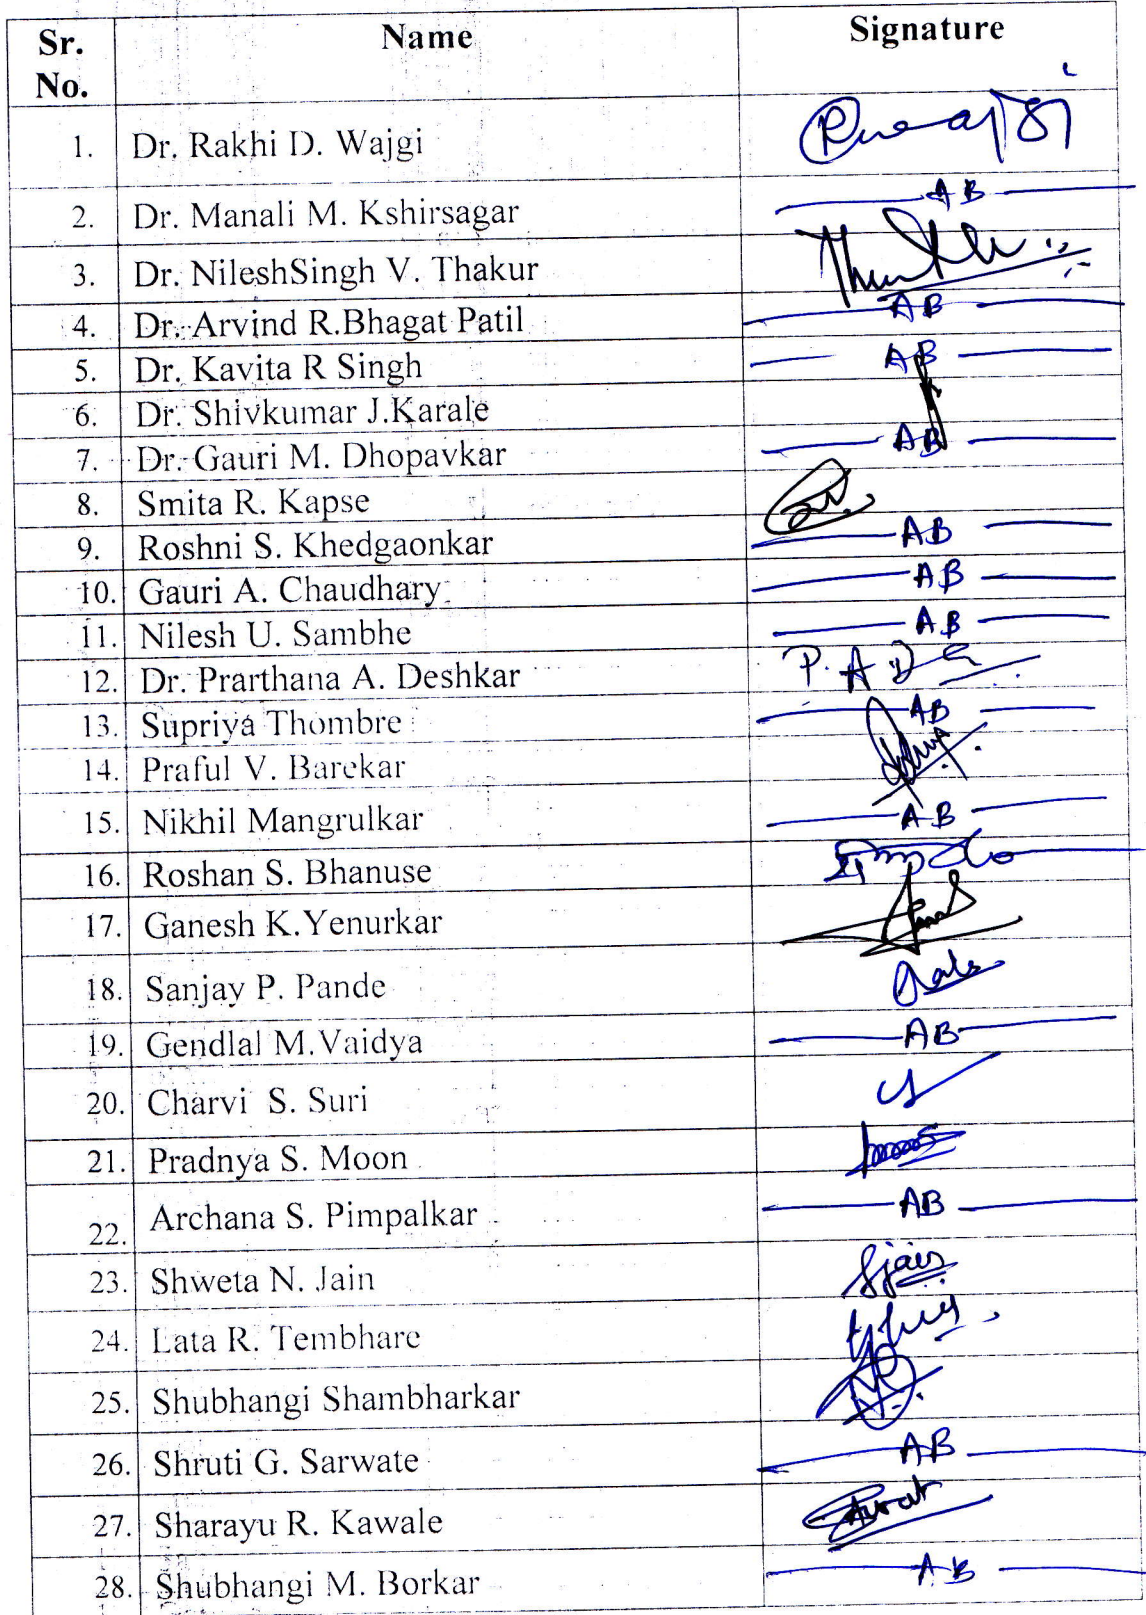 Sr. No. Name Signature
1. Dr. Rakhi D. Wajgi
2. Dr. Manali M. Kshirsagar AB
3. Dr. NileshSingh V. Thakur
4. Dr. Arvind R.Bhagat Patil AB
5. Dr. Kavita R Singh AB
6. Dr. Shivkumar J.Karale
7. Dr. Gauri M. Dhopavkar AB
8. Smita R. Kapse
9. Roshni S. Khedgaonkar AB
10. Gauri A. Chaudhary AB
11. Nilesh U. Sambhe AB
12. Dr. Prarthana A. Deshkar P. A D
13. Supriya Thombre AB
14. Praful V. Barekar
15. Nikhil Mangrulkar AB
16. Roshan S. Bhanuse
17. Ganesh K.Yenurkar
18. Sanjay P. Pande
19. Gendlal M.Vaidya AB
20. Charvi S. Suri
21. Pradnya S. Moon
22. Archana S. Pimpalkar AB
23. Shweta N. Jain Sjain
24. Lata R. Tembhare
25. Shubhangi Shambharkar
26. Shruti G. Sarwate AB
27. Sharayu R. Kawale
28. Shubhangi M. Borkar AB